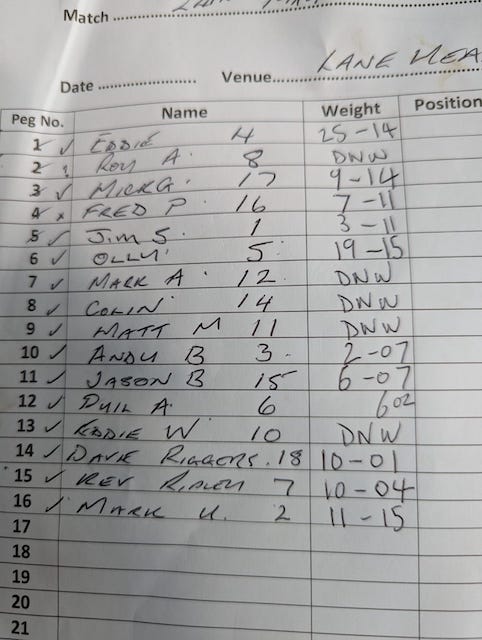 Match
LANE HEA
Date Venue
Peg No. Name Weight Position
1 ✓ EDDIE 4 25-14
2 ? ROY A. 8 DNW
3 ✓ MICK G. 17 9-14
4 x FRED P. 16 7-11
5 ✓ JIM S. 1 3-11
6 ✓ OLLY 5 19-15
7 ✓ MARK A 12 DNW
8 ✓ COLIN 14 DNW
9 ✓ MATT M 11 DNW
10 ✓ ANDY B 3 2-07
11 ✓ JASON B 15 6-07
12 ✓ PHIL A 6 6oz
13 ✓ EDDIE W 10 DNW
14 ✓ DAVE RIGGERS. 18 10-01
15 ✓ KEV RIPLEY 7 10-04
16 ✓ MARK U. 2 11-15
17
18
19
20
21